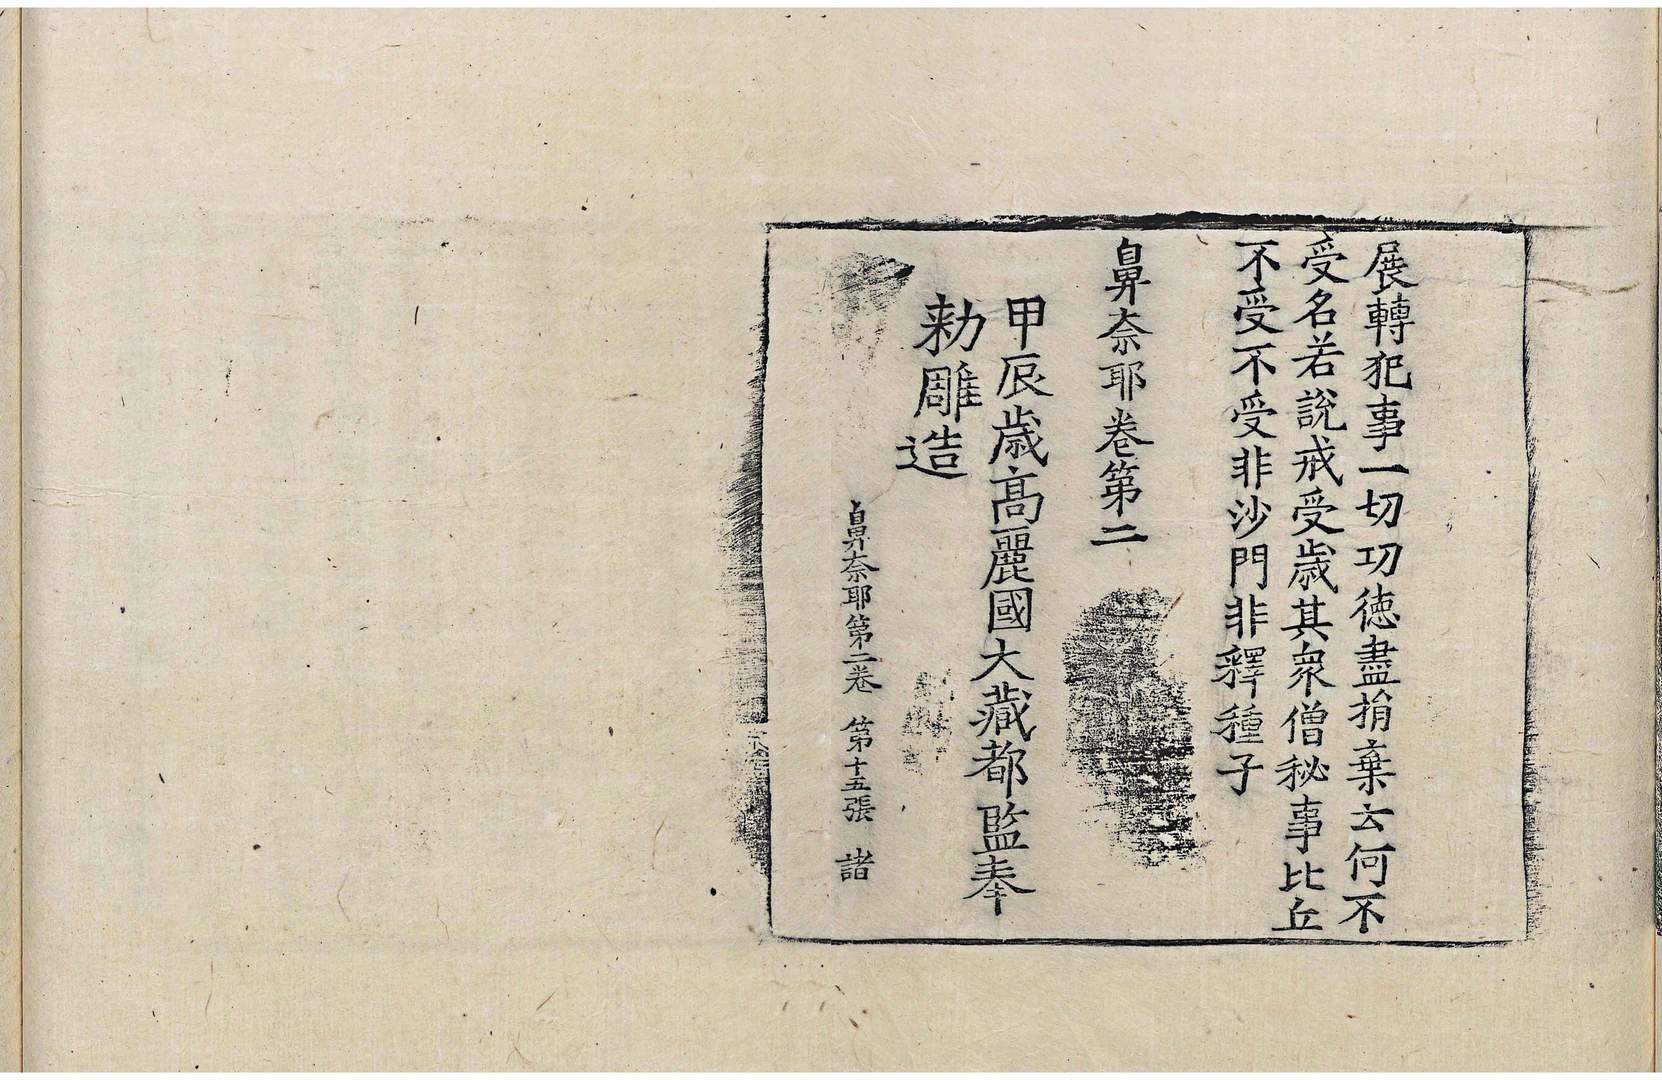 展轉犯事一切功徳盡捐棄云何不
受名若說戒受歲其衆僧秘事比丘
不受不受非沙門非釋種子
鼻奈耶卷第二
甲辰歲高麗國大藏都監奉
勑雕造
鼻奈耶第二卷 第十五張 諸